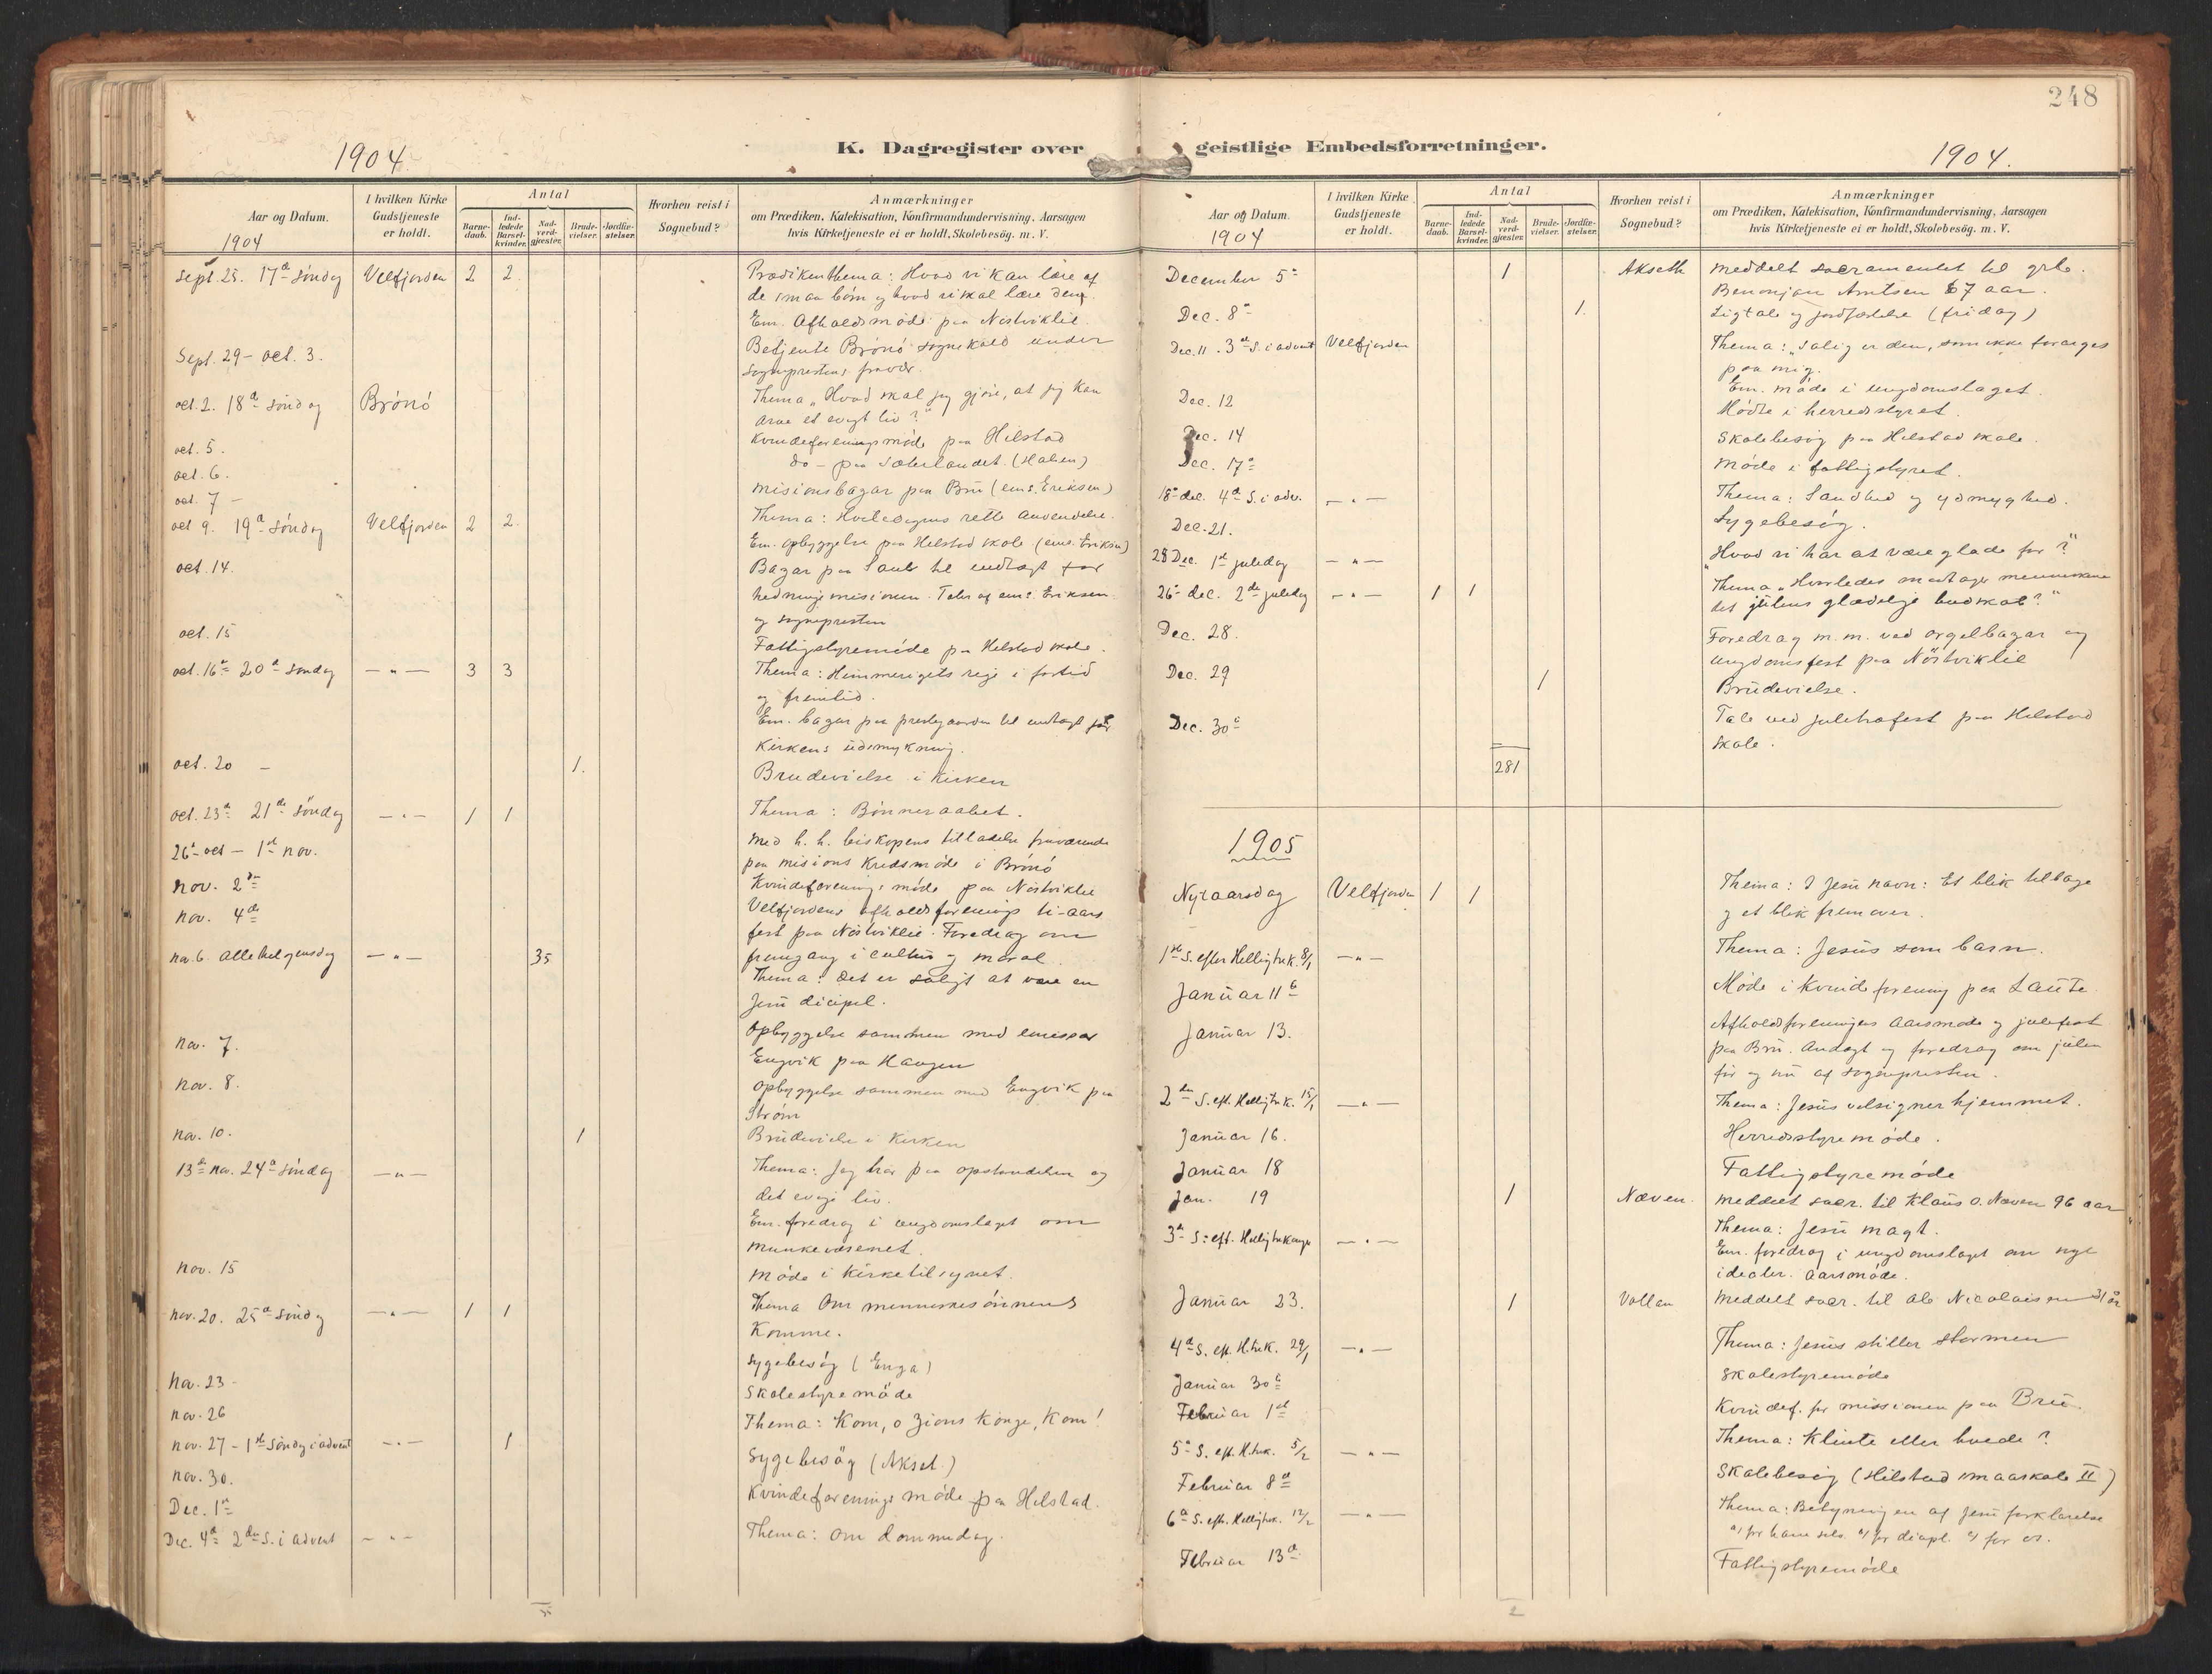 248
K. Dagregister over
geistlige Embedsforretninger.
1904.
1904.
Aar og Datum.
1904
I hvilken Kirke Gudstjeneste er holdt.
Antal
Barne-daab.
Ind-ledede Barsel-kvinder.
Nad-verd-gjester.
Brude-vielser.
Jordfæ-stelser.
Hvorhen reist i Sognebud?
Anmærkninger
om Prædiken, Katekisation, Konfirmandundervisning, Aarsagen
hvis Kirketjeneste ei er holdt, Skolebesög. m. V.
Sept. 25. 17de söndag Velfjorden 2 2 Prædikenthema: Hvad vi kan lære af
de smaa börn og hvad vi skal lære dem.
Em. Afholdsmöde paa Nöstviklie.
Sept. 29 - oct. 3. Betjente Brönö sognekald under
sogneprestens fravær.
oct. 2. 18de söndag Brönö Thema "Hvad skal jeg gjöre, at jeg kan
arve et evigt liv?"
oct. 5. Kvindeforeningsmöde paa Hilstad
oct. 6. do - paa Sæterlandet. (Halsen)
oct. 7 - Misionsbazar paa Brü (emis. Eriksen)
oct 9. 19de söndag Velfjorden 2 2. Thema: Hviledagens rette anvendelse.
Em. opbyggelse paa Helstad skole (emis. Eriksen)
oct. 14. Bazar paa Laute til indtægt for
hedningemisionen. Taler af emis. Eriksen
og sognepresten
oct. 15 Fattigstyremöde paa Helstad skole.
oct. 16de 20de söndag - " - 3 3 Thema: Himmerigets rige i fortid
og fremtid.
Em. bazar paa prestegaarden til indtægt for
Kirkens üdsmykning.
oct. 20 - 1. Brudevielse i Kirken
oct. 23de 21de söndag - " - 1 1 Thema: Bönneraabet.
26de oct - 1ste nov. Med h. h. biskopens tilladelse fraværende
paa misions Kredsmöde i Brönö
nov. 2den Kvindeforenings möde paa Nöstviklie
nov. 4de Velfjordens afholdsforenings ti-aars
fest paa Nöstviklie. Foredrag om
fremgang i cultur og moral.
no. 6. Allehelgensdag - " - 35 Thema: Det er saligt at være en
Jesu dicipel.
no. 7. Opbyggelse sammen med emissær
Engvik paa Haugen
nov. 8. Opbyggelse sammen med Engvik paa
Ström
no. 10. 1 Brüdevielse i Kirken
13de no. 24de söndag - " - Thema: Jeg tror paa opstandelsen og
det evige liv.
Em. foredrag i ungdomslaget om
munkevæsenet.
nov. 15 Möde i Kirketilsynet.
nov. 20. 25de söndag - " - 1 1 Thema Om menneskesönnens
Komme.
no. 23 - Sygebesög (Enga)
nov. 26 Skolestyremöde
nov. 27 - 1ste Söndag i advent - " - 1 Thema: Kom, o Zions Konge, Kom!
nov. 30. Sygebesög (Akset.)
Dec. 1ste Kvindeforenings möde paa Helstad.
Dec. 4de 2den S. i advent - " - Thema: Om dommedag.
Aar og Datum.
1904
I hvilken Kirke Gudstjeneste er holdt.
Antal
Barne-daab.
Ind-ledede Barsel-kvinder.
Nad-verd-gjester.
Brude-vielser.
Jordfæ-stelser.
Hvorhen reist i Sognebud?
Anmærkninger
om Prædiken, Katekisation, Konfirmandundervisning, Aarsagen
hvis Kirketjeneste ei er holdt, Skolebesög. m. V.
December 5te 1 Akseth Meddelt sacramentet til
Benonjan Arntsen 67 aar.
Dec. 8de 1. Ligtale og jordfæstelse (fridag)
Dec. 11. 3de S. i advent Velfjorden Thema: "Salig er den, som ikke forarges
paa mig.
Em. möde i ungdomslaget.
Dec. 12 Mödte i herredsstyret.
Dec. 14 Skolebesög paa Helstad skole.
Dec. 17de Möde i fattigstyret.
18de dec. 4de S. i adv. - " - Thema: Sandhed og ydmyghed.
Dec. 21. Sygebesög.
25 Dec. 1ste juledag - " - "Hvad vi har at være glade for?"
26de dec. 2den juledag - " - 1 1 Thema "Hvorledes modtager menneskene
det jülens glædelige budskab?"
Dec. 28. Foredrag m. m. ved orgelbazar og
ungdomsfest paa Nöstviklie
Dec. 29 1 Brüdevielse.
Dec. 30te Tale ved juletræfest paa Helstad
skole.
281
1905
Nytaarsdag Velfjorden 1 1 Thema: I Jesu navn: Et blik tilbage
og et blik fremover.
1ste S. efter Helligtrek. 8/1 - " - Thema: Jesüs som barn.
Janüar 11te Möde i Kvindeforening paa Laüte.
Janüar 13. Afholdsforeningens aarsmöde og julefest
paa Brü. Andagt og foredrag om jülen
för og nü af sognepresten.
2den S. eft. Helligtrek. 15/1 - " - Thema: Jesüs velsigner hjemmet.
Janüar 16. Herredsstyremöde.
Janüar 18 Fattigstyremöde
Jan. 19 1 Næven. Meddelt sacr. til Klaüs O. Næven 96 aar
3de S. eft. Helligtrekonger - " - Thema: Jesü magt.
Em. foredrag i ungdomslaget om nye
idealer. Aarsmöde.
Janüar 23. 1 Vollan Meddelt sacr. til Ole Nicolaisen 31 aar
4de S. eft. H. trek. 29/1 - " - Thema: Jesüs stiller stormen
Janüar 30te Skolestyremöde
Februar 1ste Kvindef. for missionen paa Brü.
5te S. eft. H. trek. 5/2 - " - Thema: Klinte eller hvede?
Februar 8de Skolebesög (Hilstad smaaskole II)
6te S. eft. Helligtrek. 12/2 - " - Thema: Betydningen af Jesu forklarelse
a) for ham selv. b) for dicipl. c) for os.
Februar 13de Fattigstyremöde
35
2